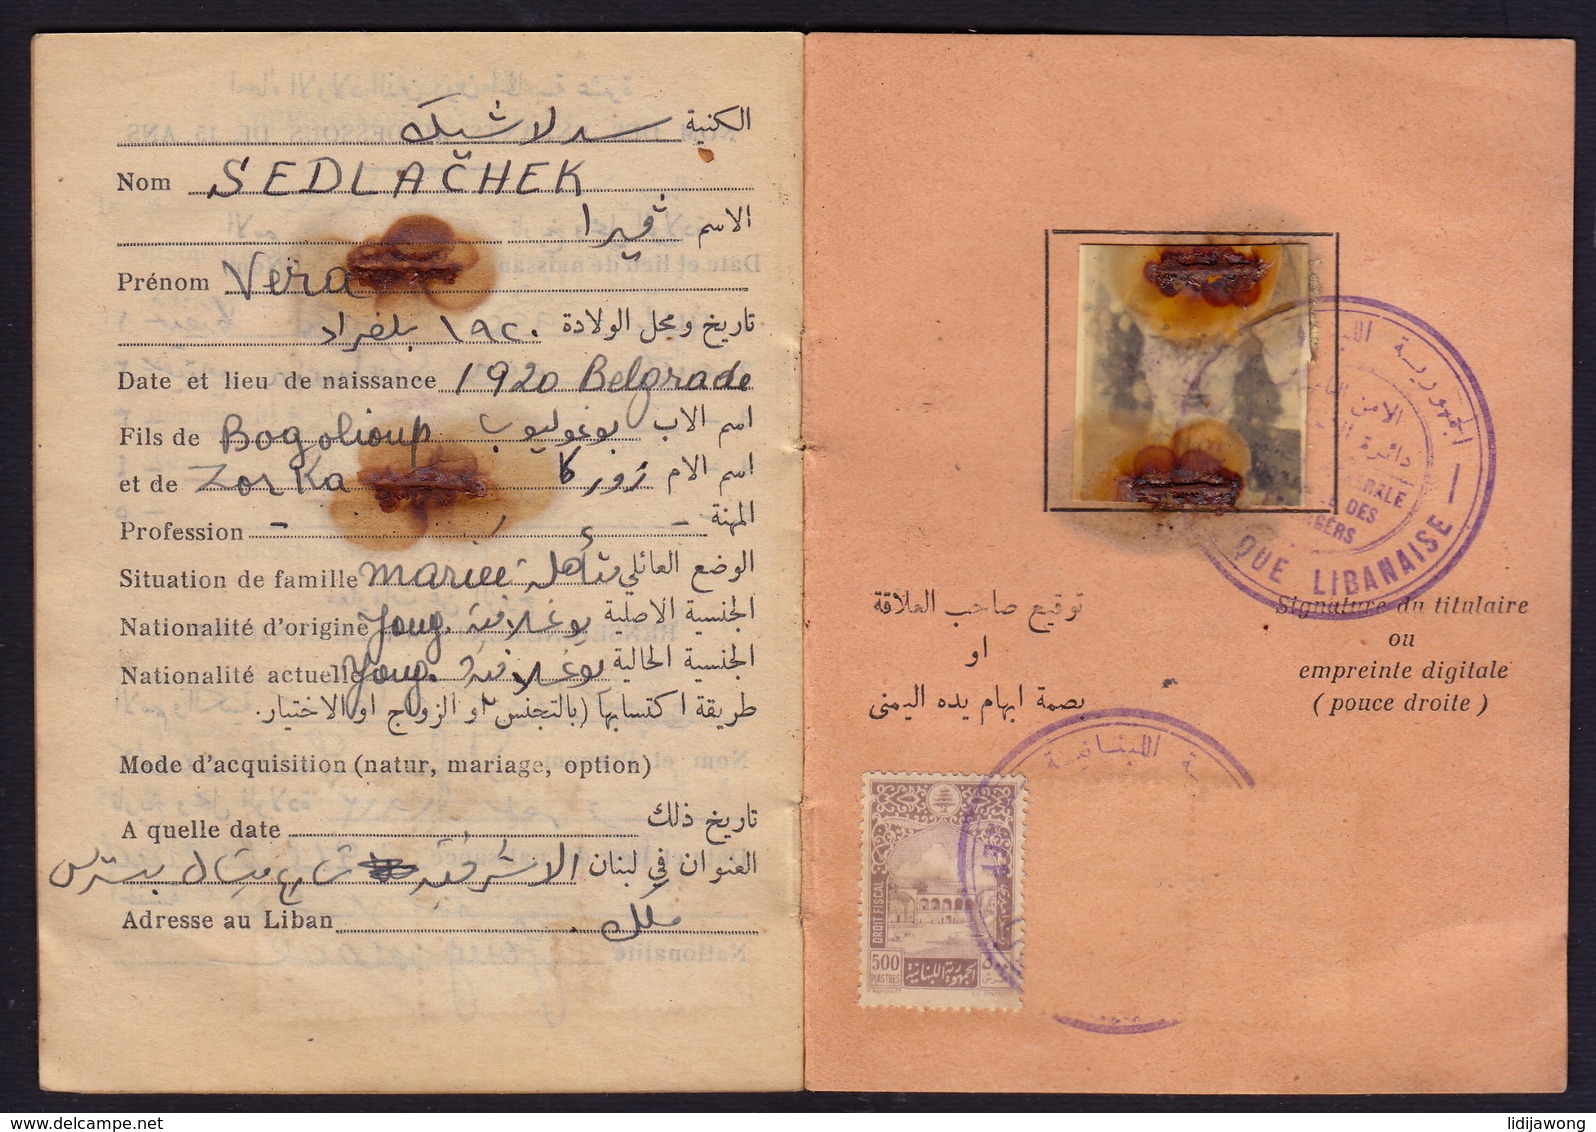 الكنية سدلاشيك
Nom SEDLAČHEK
الاسم ڤيرا
Prénom Vera
تاريخ ومحل الولادة ١٩٢٠ بلغراد
Date et lieu de naissance 1920 Belgrade
Fils de Bogolioup اسم الاب بوغوليوب
et de Zorka اسم الام زوركا
Profession - المهنة -
Situation de famille mariée الوضع العائلي متأهلة
Nationalité d'origine Youg. الجنسية الاصلية يوغسلافية
Nationalité actuelle Youg. الجنسية الحالية يوغسلافية
طريقة اكتسابها (بالتجنس او الزواج او الاختيار.
Mode d'acquisition (natur, mariage, option)
A quelle date تاريخ ذلك
العنوان في لبنان الاشرفية شارع بسترس
Adresse au Liban ملك
الجمهورية
الامن العام
دائرة
DES
QUE LIBANAISE
توقيع صاحب العلاقة
او
بصمة ابهام يده اليمنى
Signature du titulaire
ou
empreinte digitale
(pouce droite)
اللبنانية
DROIT FISCAL
500
PIASTRES
الجمهورية اللبنانية
lidijawong